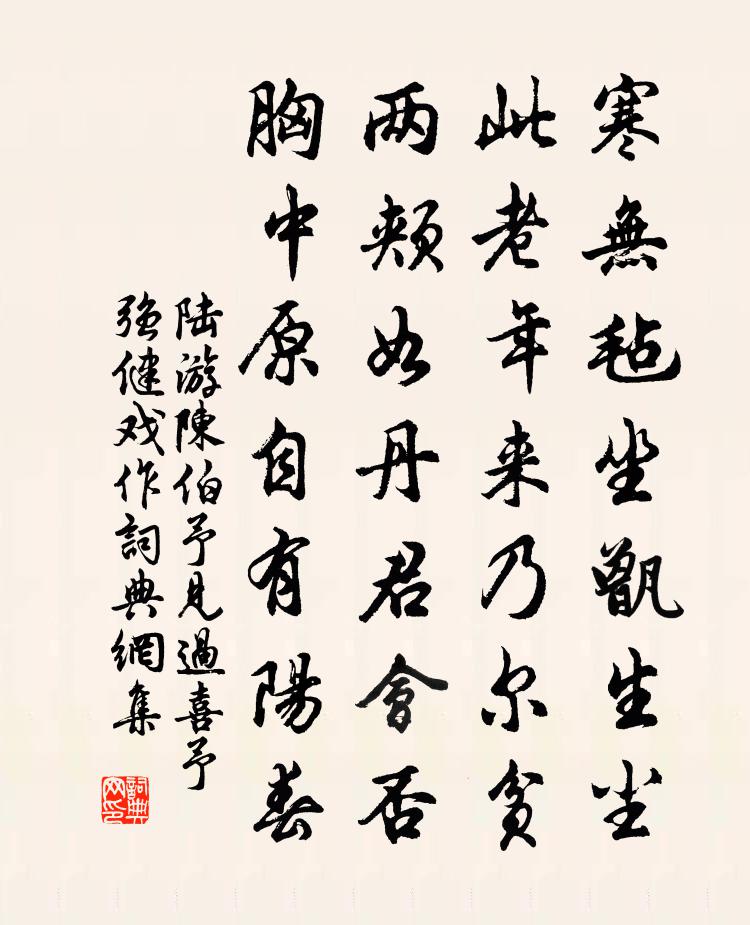 寒無毡坐甑生尘
此老年来乃尔贫
两颊如丹君會否
胸中原自有陽春
陆游陳伯予見過喜予
强健戏作詞典網集
詞典网印